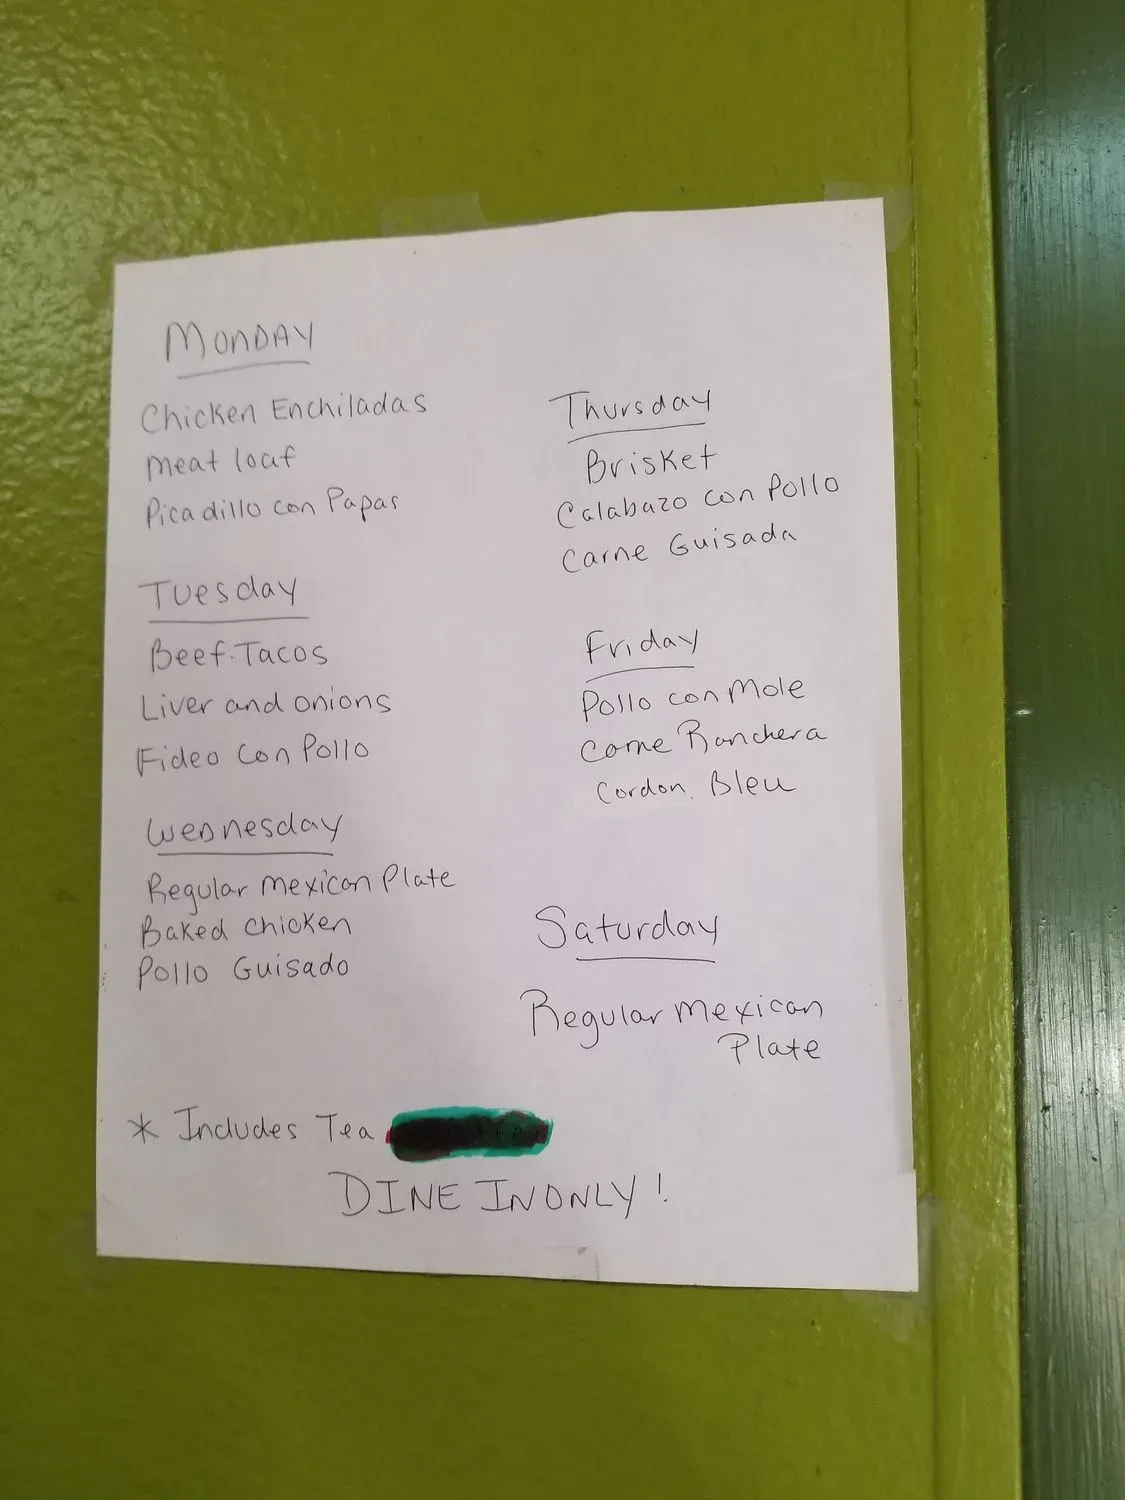 MONDAY
Chicken Enchiladas
Meat loaf
Picadillo con Papas
Tuesday
Beef Tacos
Liver and onions
Fideo Con Pollo
Wednesday
Regular Mexican Plate
Baked chicken
Pollo Guisado
Thursday
Brisket
Calabazo con Pollo
Carne Guisada
Friday
Pollo con Mole
Carne Ranchera
Cordon Bleu
Saturday
Regular Mexican
Plate
* Includes Tea
DINE IN ONLY!